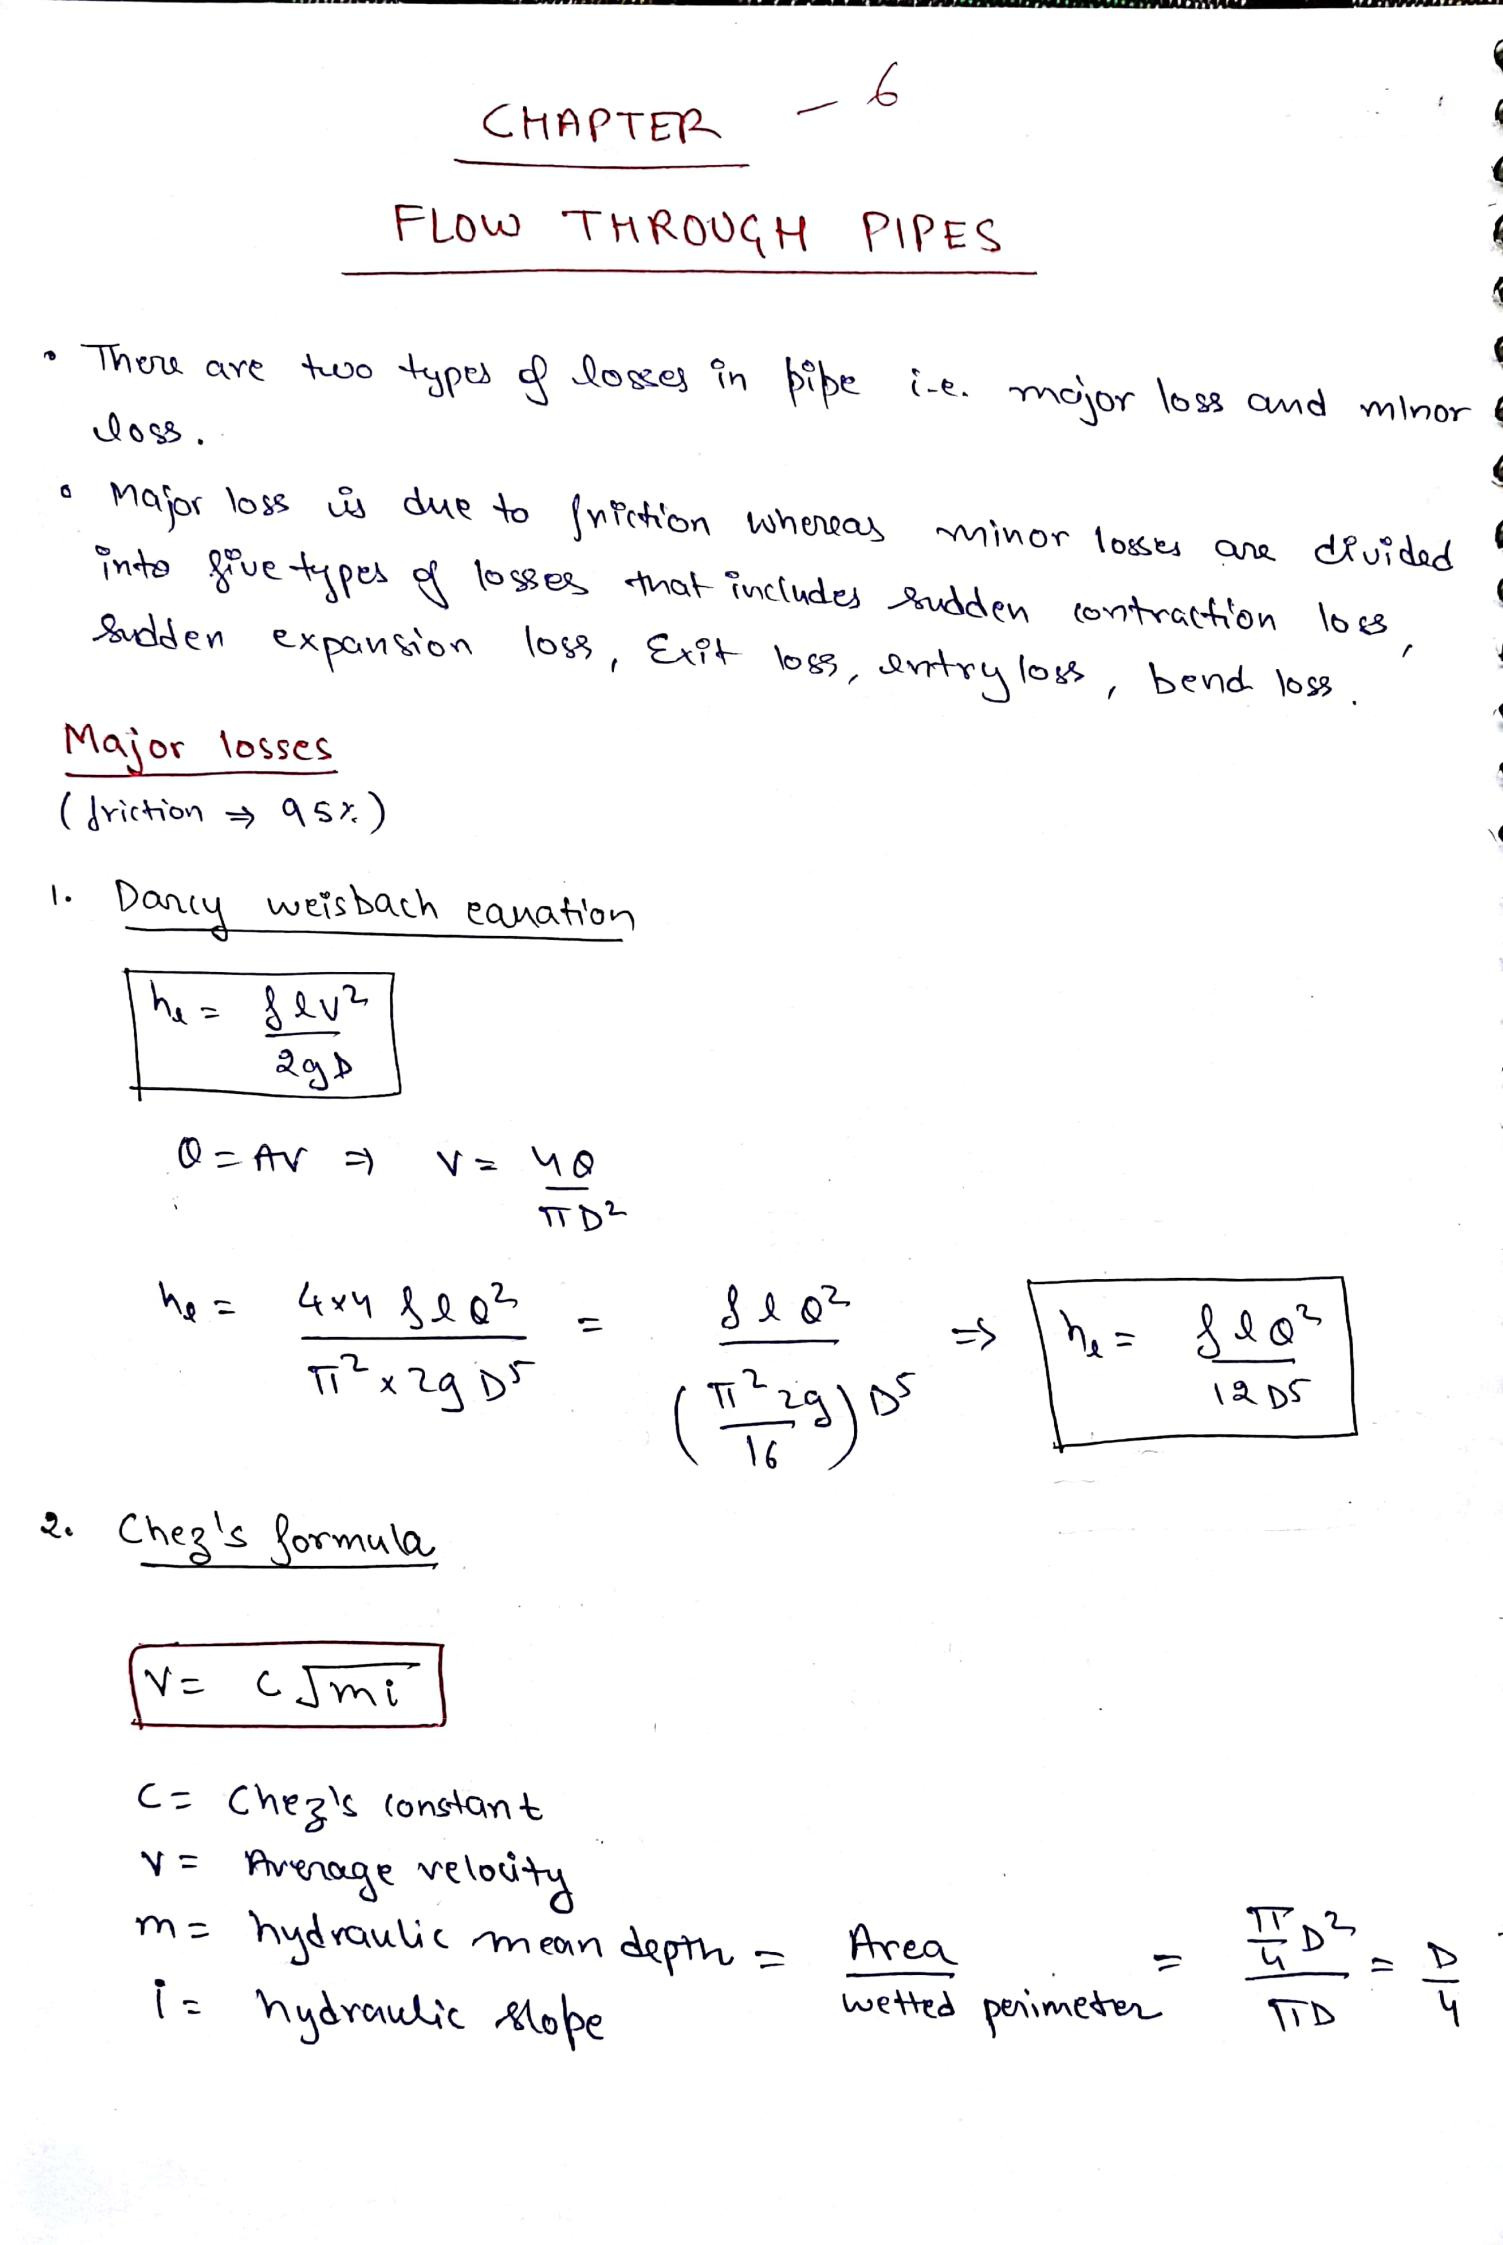 CHAPTER - 6
FLOW THROUGH PIPES
• There are two types of losses in pipe i.e. major loss and minor
loss.
• Major loss is due to friction whereas minor losses are divided
into five types of losses that includes sudden contraction loss,
sudden expansion loss, Exit loss, entry loss, bend loss.
Major losses
(friction ⇒ 95%)
1. Darcy weisbach equation
hℓ = fℓv² / 2gD
Q = AV ⇒ V = 4Q / πD²
hℓ = 4×4 fℓQ² / π² × 2g D⁵ = fℓQ² / (π² 2g / 16) D⁵ ⇒ hℓ = fℓQ² / 12 D⁵
2. Chez's formula
V = C √mi
C = Chez's constant
V = Average velocity
m = hydraulic mean depth = Area / wetted perimeter = π/4 D² / πD = D/4
i = hydraulic slope